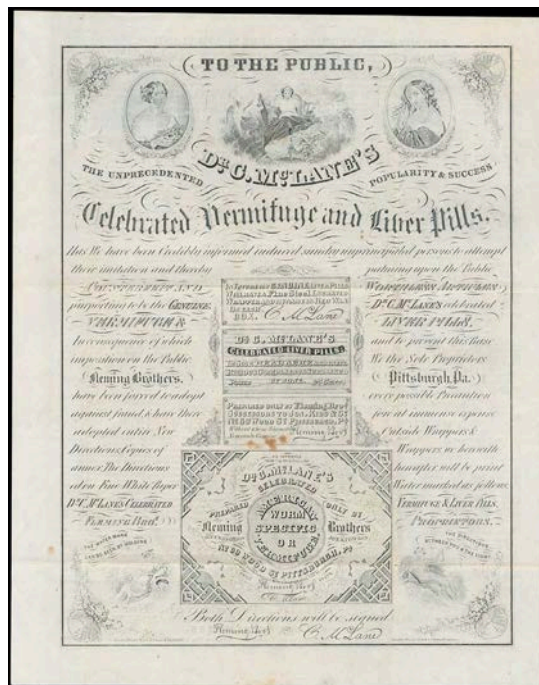 TO THE PUBLIC,
THE UNPRECEDENTED
POPULARITY & SUCCESS
Dr. C. McLANE'S
Celebrated Vermifuge and Liver Pills.
Has We have been Credibly informed induced sundry unprincipled persons to attempt
their imitation and thereby
palming upon the Public
COUNTERFEIT AND
WORTHLESS ARTICLES
purporting to be the GENUINE
Dr. C. McLANE'S celebrated
VERMIFUGE &
LIVER PILLS,
In consequence of which
and to prevent this Base
imposition on the Public
We the Sole Proprietors
Fleming Brothers,
Pittsburgh, Pa.
have been forced to adopt
every possible Precaution
against fraud, & have there
fore at immense expense
adopted entire New
Outside Wrappers &
Directions, Copies of
Wrappers, we herewith
annex. The Directions
hereafter will be print
ed on Fine White Paper
Water marked as follows,
Dr. C. McLANE'S CELEBRATED
VERMIFUGE & LIVER PILLS,
FLEMING Bros.
PROPRIETORS.
BOX.
C. McLane
Dr. C. McLANE'S
CELEBRATED LIVER PILLS
PREPARED ONLY BY Fleming Bros
SUCCESSORS TO JON. KIDD & Co
No. 60 WOOD St PITTSBURGH, Pa
Fleming Bros
Dr. C. McLANE'S
CELEBRATED
AMERICAN
WORM
SPECIFIC
OR
VERMIFUGE.
PREPARED ONLY BY
Fleming Brothers
No. 60 WOOD St PITTSBURGH, Pa
Fleming Bros
THE WATER MARK
CAN BE SEEN BY HOLDING
THE DIRECTIONS
BETWEEN YOU & THE LIGHT
Both Directions will be signed
Fleming Bros
C. McLane